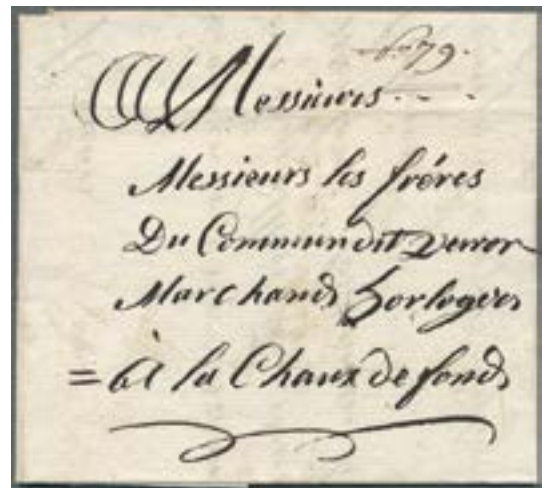 79.
A Messieurs . - -
Messieurs les fréres
Du Commun dit Veron
Marchands horlogers
= à la Chaux de fonds